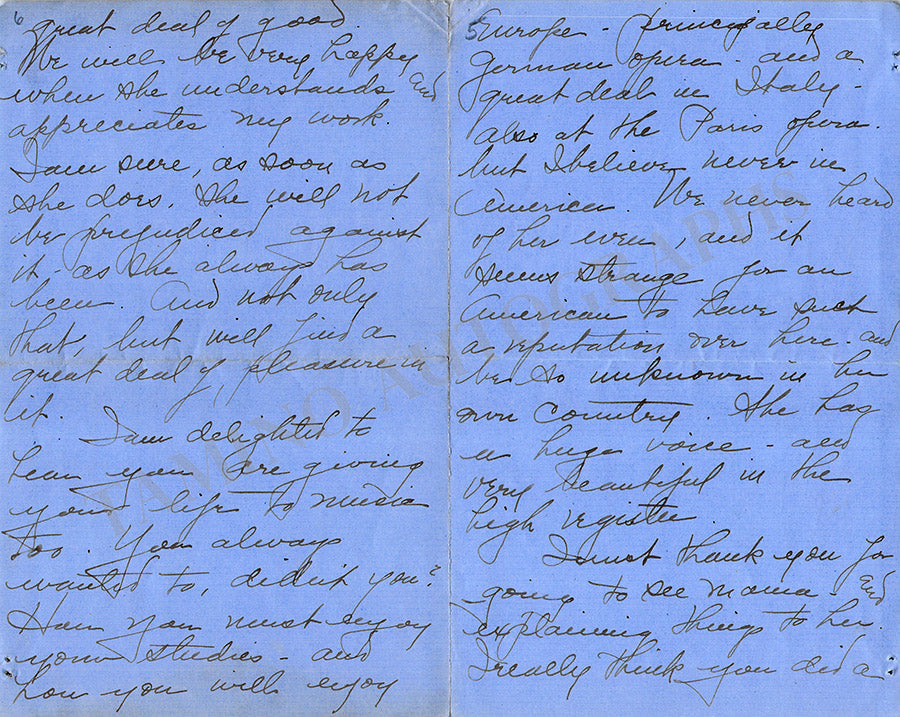 5
Europe - principally
German opera - and a
great deal in Italy -
also at the Paris opera.
but I believe never in
America. We never heard
of her even, and it
seems strange for an
American to have such
a reputation over here - and
be so unknown in her
own country. She has
a huge voice - and
very beautiful in the
high register.
I must thank you for
going to see mama - and
explaining things to her.
I really think you did a
6
great deal of good.
We will be very happy
when she understands and
appreciates my work.
I am sure, as soon as
she does, she will not
be prejudiced against
it - as she always has
been. And not only
that, but will find a
great deal of pleasure in
it.
I am delighted to
hear you are giving
your life to music
too. You always
wanted to, didn't you?
How you must enjoy
your studies - and
how you will enjoy
TAMINO AUTOGRAPHS